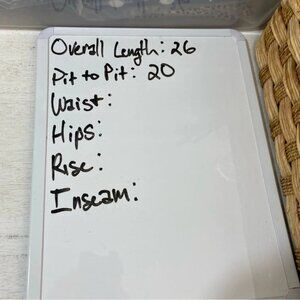 Overall Length: 26
Pit to Pit: 20
Waist:
Hips:
Rise:
Inseam: